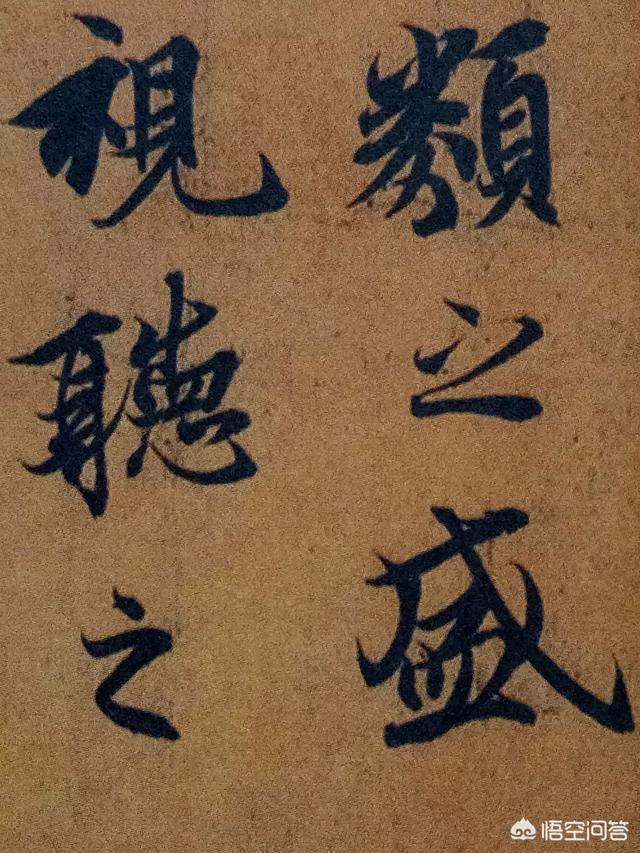 類之盛
視聽之
悟空问答